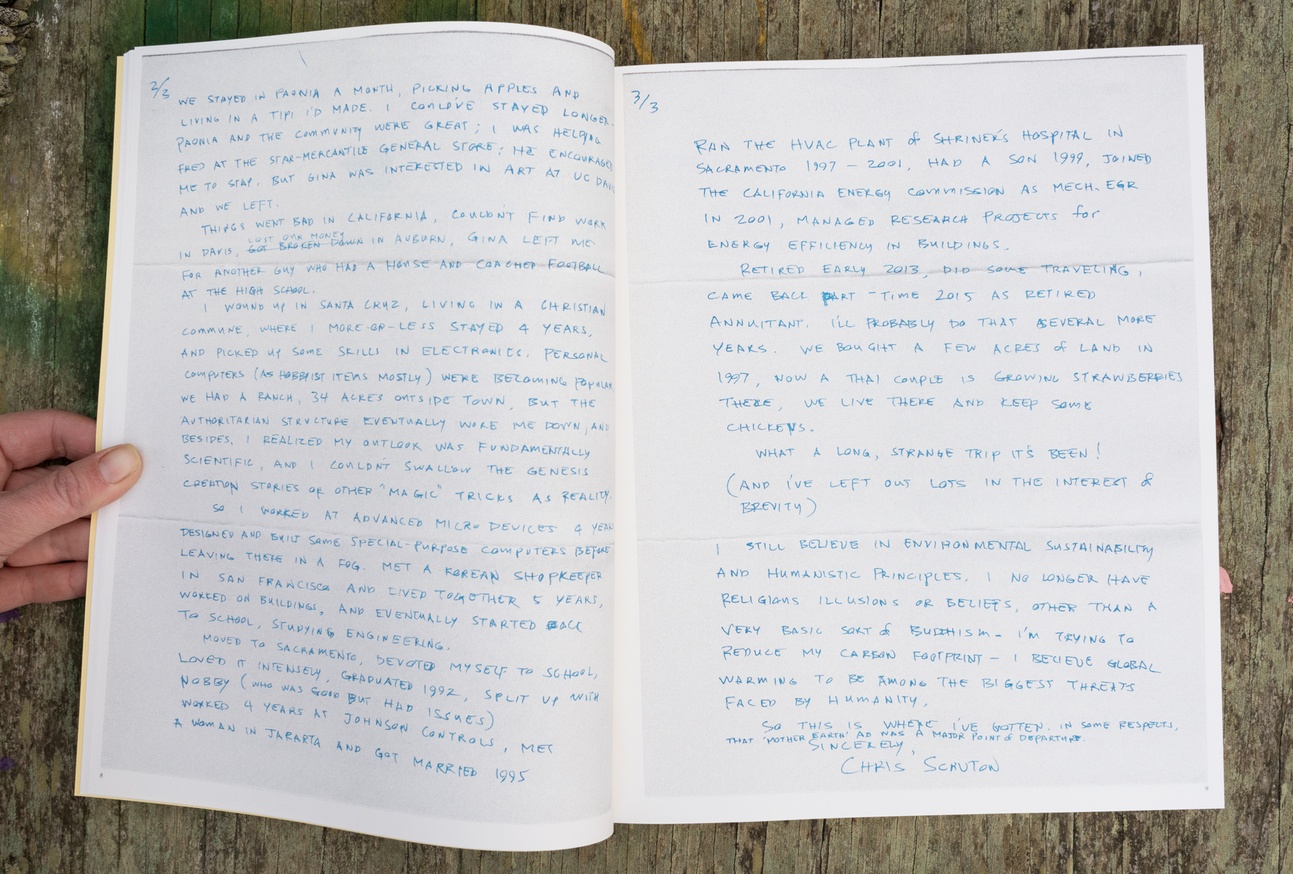 2/3
WE STAYED IN PAONIA A MONTH, PICKING APPLES AND
LIVING IN A TIPI I'D MADE. I COULD'VE STAYED LONGER.
PAONIA AND THE COMMUNITY WERE GREAT; I WAS HELPING
FRED AT THE STAR-MERCANTILE GENERAL STORE; HE ENCOURAGED
ME TO STAY. BUT GINA WAS INTERESTED IN ART AT UC DAVIS
AND WE LEFT.
THINGS WENT BAD IN CALIFORNIA, COULDN'T FIND WORK
LOST OUR MONEY
IN DAVIS, GOT BROKEN DOWN IN AUBURN, GINA LEFT ME
FOR ANOTHER GUY WHO HAD A HOUSE AND COACHED FOOTBALL
AT THE HIGH SCHOOL.
I WOUND UP IN SANTA CRUZ, LIVING IN A CHRISTIAN
COMMUNE, WHERE I MORE-OR-LESS STAYED 4 YEARS,
AND PICKED UP SOME SKILLS IN ELECTRONICS. PERSONAL
COMPUTERS (AS HOBBYIST ITEMS MOSTLY) WERE BECOMING POPULAR
WE HAD A RANCH, 34 ACRES OUTSIDE TOWN, BUT THE
AUTHORITARIAN STRUCTURE EVENTUALLY WORE ME DOWN, AND
BESIDES, I REALIZED MY OUTLOOK WAS FUNDAMENTALLY
SCIENTIFIC, AND I COULDN'T SWALLOW THE GENESIS
CREATION STORIES OR OTHER "MAGIC" TRICKS AS REALITY.
SO I WORKED AT ADVANCED MICRO DEVICES 4 YEARS
DESIGNED AND BUILT SOME SPECIAL-PURPOSE COMPUTERS BEFORE
LEAVING THERE IN A FOG. MET A KOREAN SHOPKEEPER
IN SAN FRANCISCO AND LIVED TOGETHER 5 YEARS,
WORKED ON BUILDINGS, AND EVENTUALLY STARTED BACK
TO SCHOOL, STUDYING ENGINEERING.
MOVED TO SACRAMENTO, DEVOTED MYSELF TO SCHOOL,
LOVED IT INTENSELY, GRADUATED 1992, SPLIT UP WITH
NOBBY (WHO WAS GOOD BUT HAD ISSUES)
WORKED 4 YEARS AT JOHNSON CONTROLS, MET
A WOMAN IN JAKARTA AND GOT MARRIED 1995
8
3/3
RAN THE HVAC PLANT of SHRINER'S HOSPITAL IN
SACRAMENTO 1997 - 2001, HAD A SON 1999, JOINED
THE CALIFORNIA ENERGY COMMISSION AS MECH. EGR
IN 2001, MANAGED RESEARCH PROJECTS for
ENERGY EFFICIENCY IN BUILDINGS.
RETIRED EARLY 2013, DID SOME TRAVELING,
CAME BACK PART-TIME 2015 AS RETIRED
ANNUITANT. I'LL PROBABLY DO THAT SEVERAL MORE
YEARS. WE BOUGHT A FEW ACRES of LAND IN
1997, NOW A THAI COUPLE IS GROWING STRAWBERRIES
THERE, WE LIVE THERE AND KEEP SOME
CHICKENS.
WHAT A LONG, STRANGE TRIP IT'S BEEN!
(AND I'VE LEFT OUT LOTS IN THE INTEREST of
BREVITY)
I STILL BELIEVE IN ENVIRONMENTAL SUSTAINABILITY
AND HUMANISTIC PRINCIPLES. I NO LONGER HAVE
RELIGIOUS ILLUSIONS OR BELIEFS, OTHER THAN A
VERY BASIC SORT of BUDDHISM - I'M TRYING TO
REDUCE MY CARBON FOOTPRINT - I BELIEVE GLOBAL
WARMING TO BE AMONG THE BIGGEST THREATS
FACED BY HUMANITY.
SO THIS IS WHERE I'VE GOTTEN. IN SOME RESPECTS,
THAT 'MOTHER EARTH' AD WAS A MAJOR POINT of DEPARTURE.
SINCERELY,
CHRIS SCHUTON
9